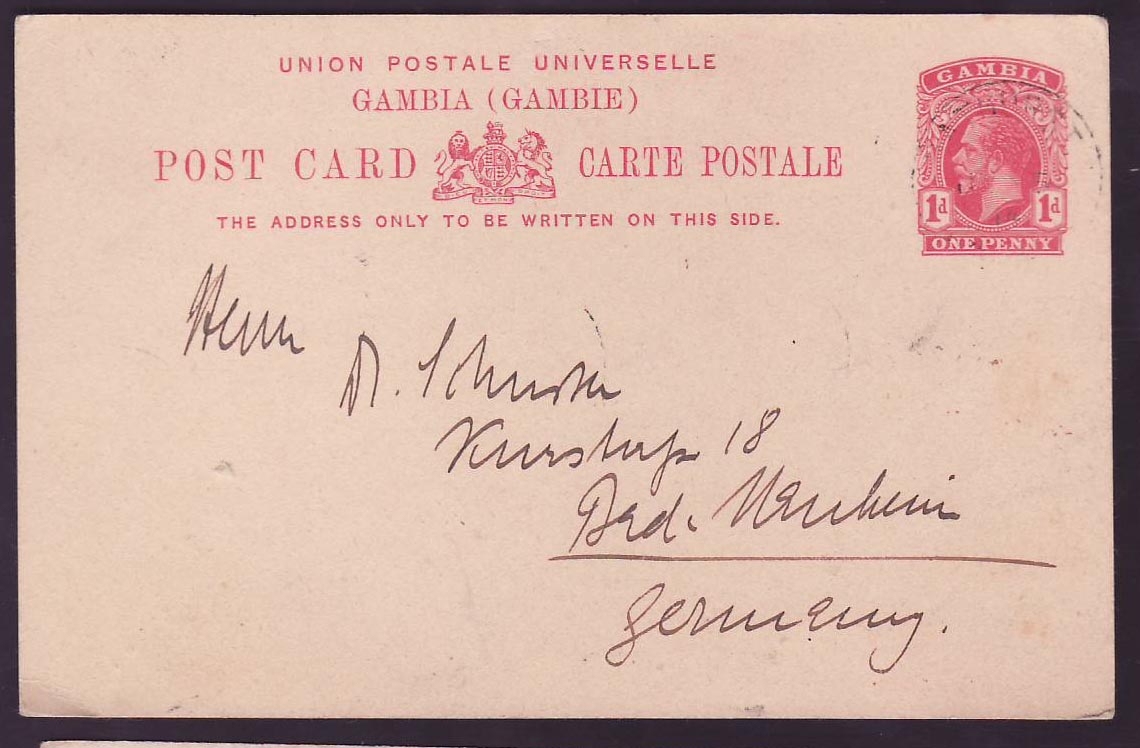 UNION POSTALE UNIVERSELLE
GAMBIA (GAMBIE)
POST CARD CARTE POSTALE
THE ADDRESS ONLY TO BE WRITTEN ON THIS SIDE.
GAMBIA
1d 1d
ONE PENNY
Herrn
Dr. Schuster
Kurstrasse 18
Bad. Nauheim
Germany.